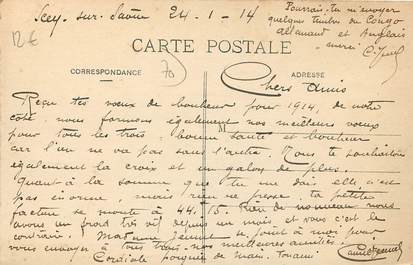 Scey-sur-Saône 24-1-14
Pourrais-tu m'envoyer
quelques timbres du Congo
Allemand et Anglais
merci
12€
CARTE POSTALE
CORRESPONDANCE
70
ADRESSE
Chers Amis
Reçu tes vœux de bonheur pour 1914, de notre
côté, nous formons également nos meilleurs vœux
pour tous les trois, bonne santé et bonheur
M
car l'un ne va pas sans l'autre. Nous te souhaitons
également la croix et un galon de plus.
Quant à la somme que tu me dois elle n'est
pas énorme, mais rien ne presse, ta petite
facture se monte à 44.75. Rien de nouveau nous
avons un froid très vif depuis un mois et vous c'est le
contraire. se joint à moi pour
vous envoyer à tous trois nos meilleures amitiés.
Cordiale poignée de main.